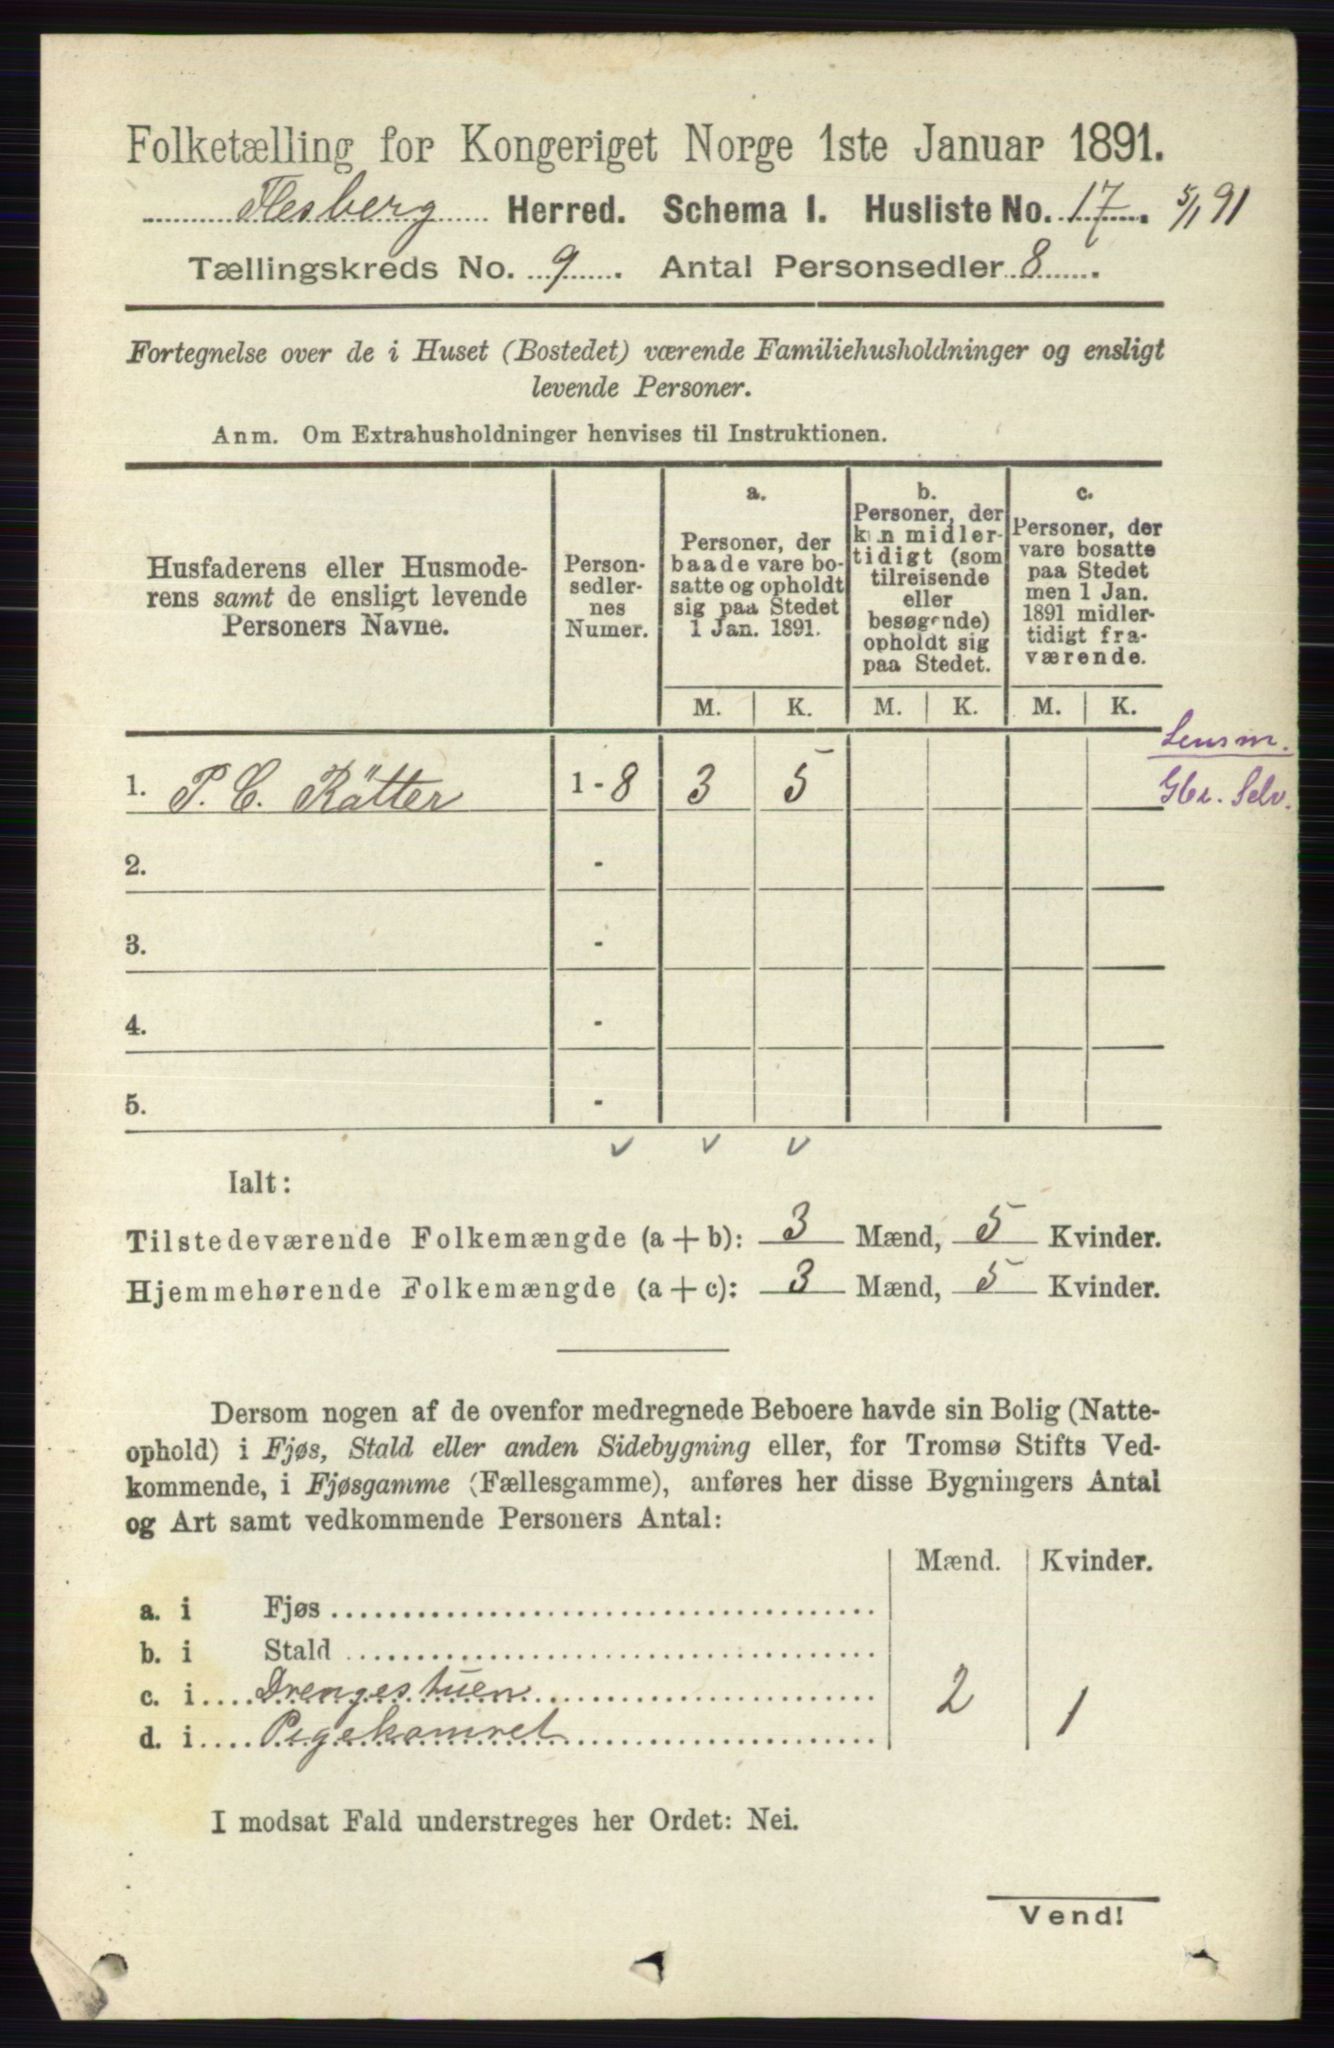 Folketælling for Kongeriget Norge 1ste Januar 1891.
Flesberg Herred. Schema I. Husliste No. 17. 5/1 91
Tællingskreds No. 9. Antal Personsedler 8.
Fortegnelse over de i Huset (Bostedet) værende Familiehusholdninger og ensligt
levende Personer.
Anm. Om Extrahusholdninger henvises til Instruktionen.
Husfaderens eller Husmode-
rens samt de ensligt levende
Personers Navne.
Person-
sedler-
nes
Numer.
a.
Personer, der
baade vare bo-
satte og opholdt
sig paa Stedet
1 Jan. 1891.
b.
Personer, der
kun midler-
tidigt (som
tilreisende
eller
besøgende)
opholdt sig
paa Stedet.
c.
Personer, der
vare bosatte
paa Stedet
men 1 Jan.
1891 midler-
tidigt fra-
værende.
M. K. M. K. M. K.
Lensm.
1. P. C. Rötter 1 - 8 3 5 Gbr. Selv.
2. -
3. -
4. -
5. -
Ialt:
Tilstedeværende Folkemængde (a + b): 3 Mænd, 5 Kvinder.
Hjemmehørende Folkemængde (a + c): 3 Mænd, 5 Kvinder.
Dersom nogen af de ovenfor medregnede Beboere havde sin Bolig (Natte-
ophold) i Fjøs, Stald eller anden Sidebygning eller, for Tromsø Stifts Ved-
kommende, i Fjøsgamme (Fællesgamme), anføres her disse Bygningers Antal
og Art samt vedkommende Personers Antal:
Mænd. Kvinder.
a. i Fjøs
b. i Stald
c. i Drengestuen 2
d. i Pigekamret 1
I modsat Fald understreges her Ordet: Nei.
Vend!